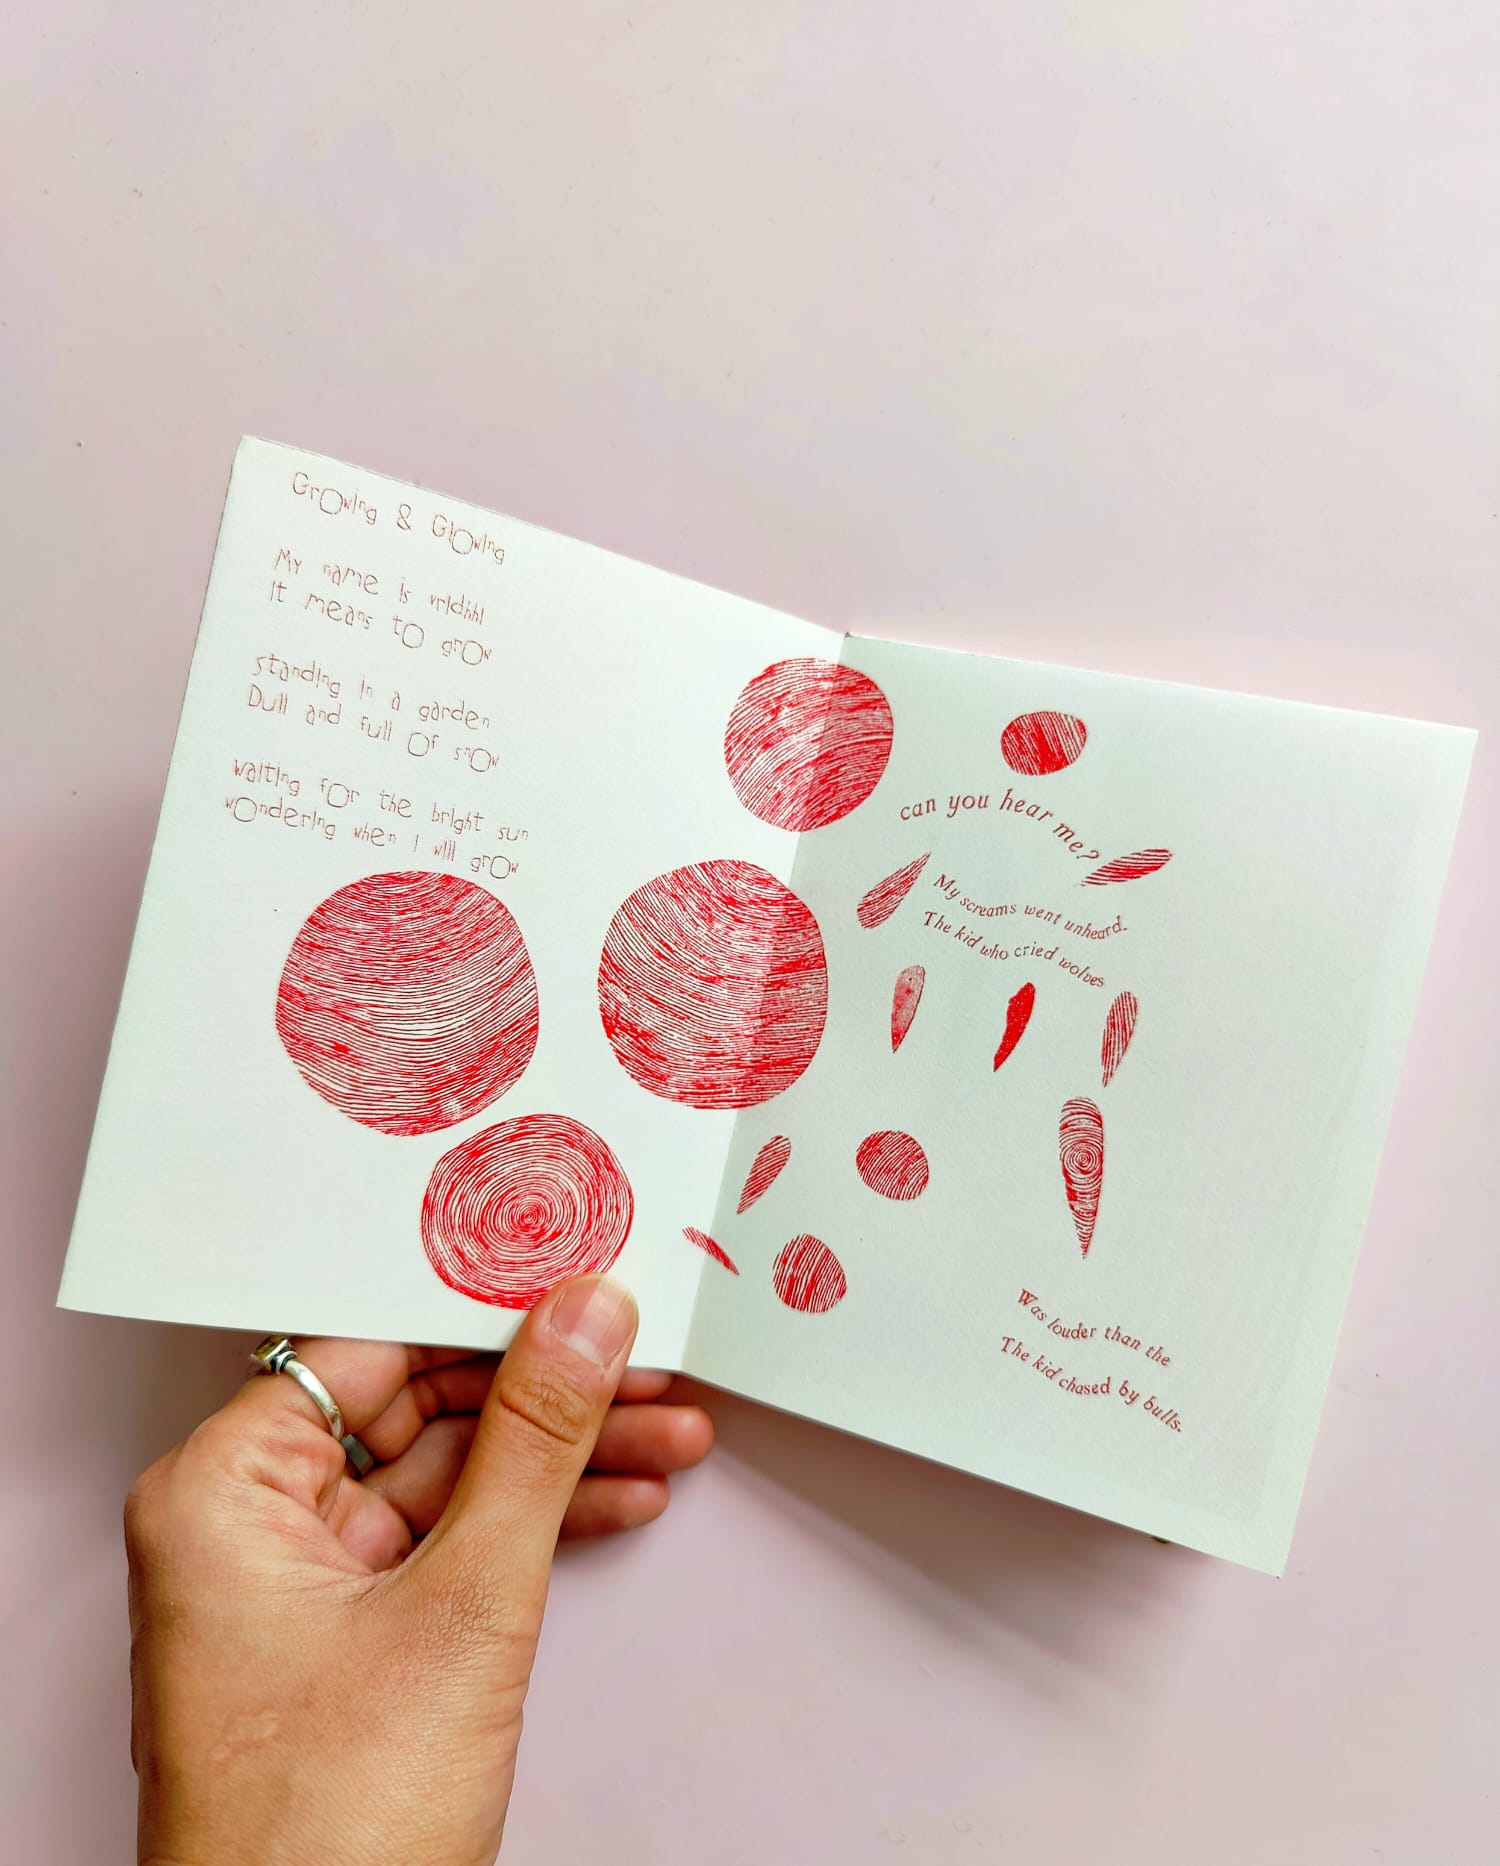 Growing & Glowing
My name is vriddhi
It means to grow
standing in a garden
Dull and full Of snow
waiting for the bright sun
wondering when I will grow
can you hear me?
My screams went unheard.
The kid who cried wolves
Was louder than the
The kid chased by bulls.